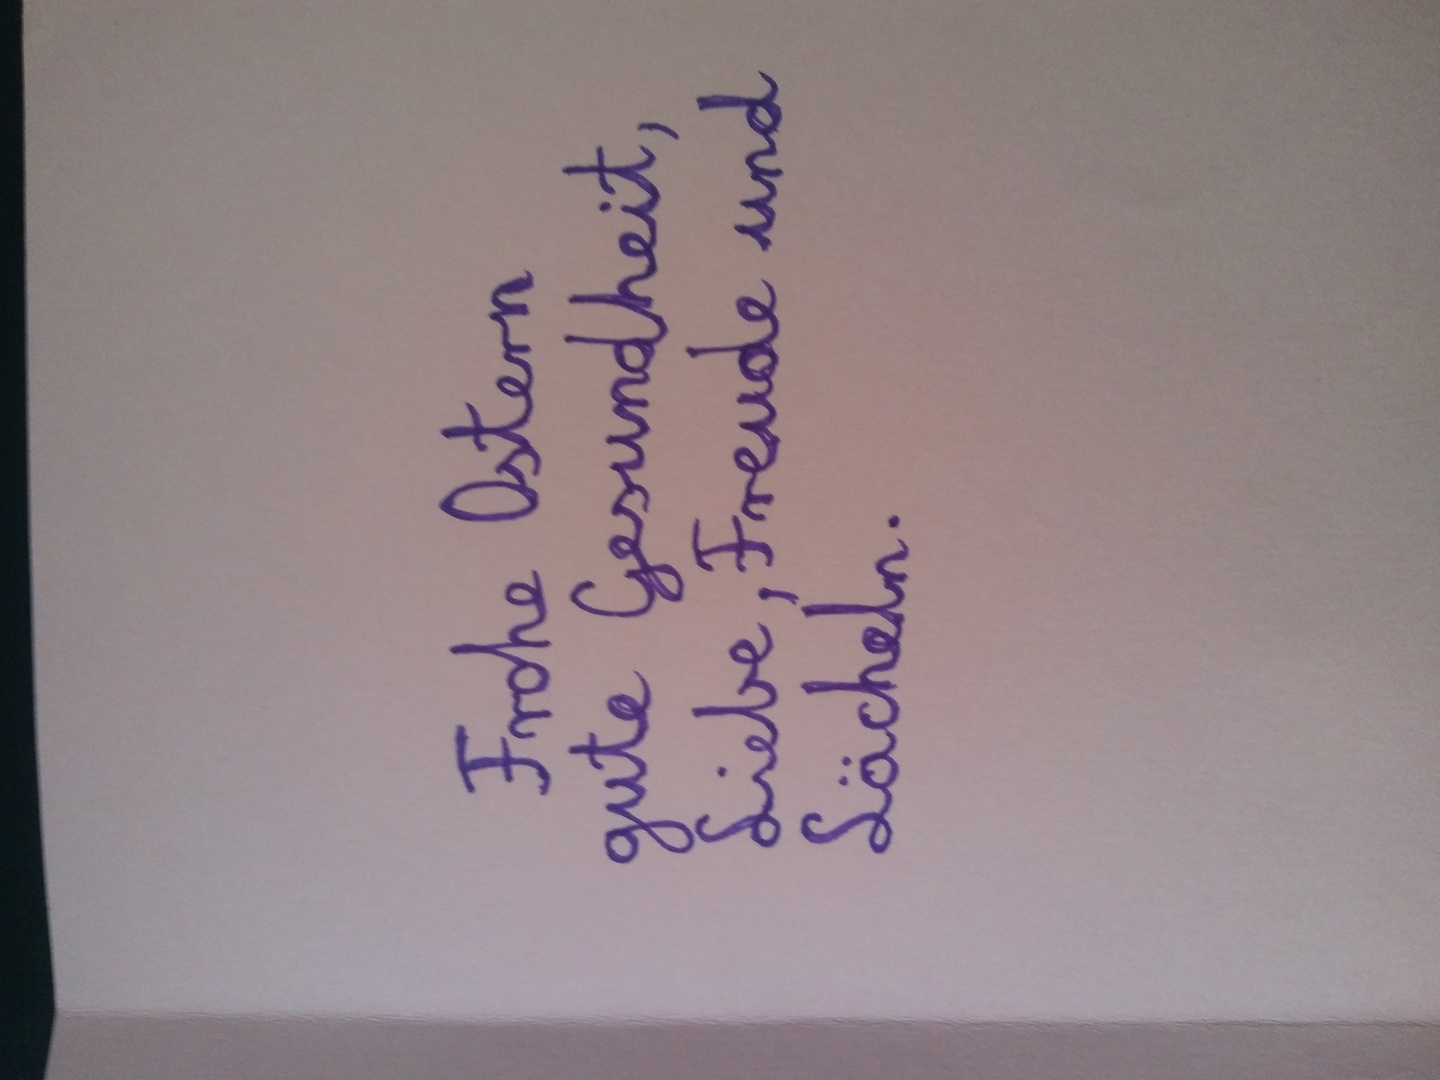 Frohe Ostern
gute Gesundheit,
Liebe, Freude und
Lächeln.